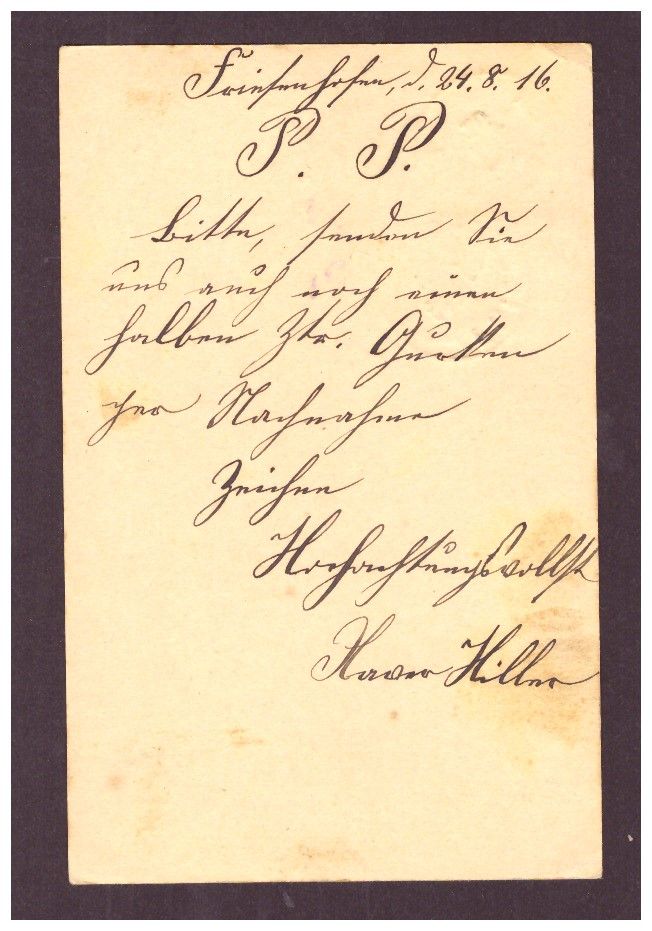 Friesenhofen, d. 24. 8. 16.
P. P.
Bitte, senden Sie
uns auch noch einen
halben Ztr. Gurken
per Nachnahme
Zeichne
Hochachtungsvollst
Xaver Hiller